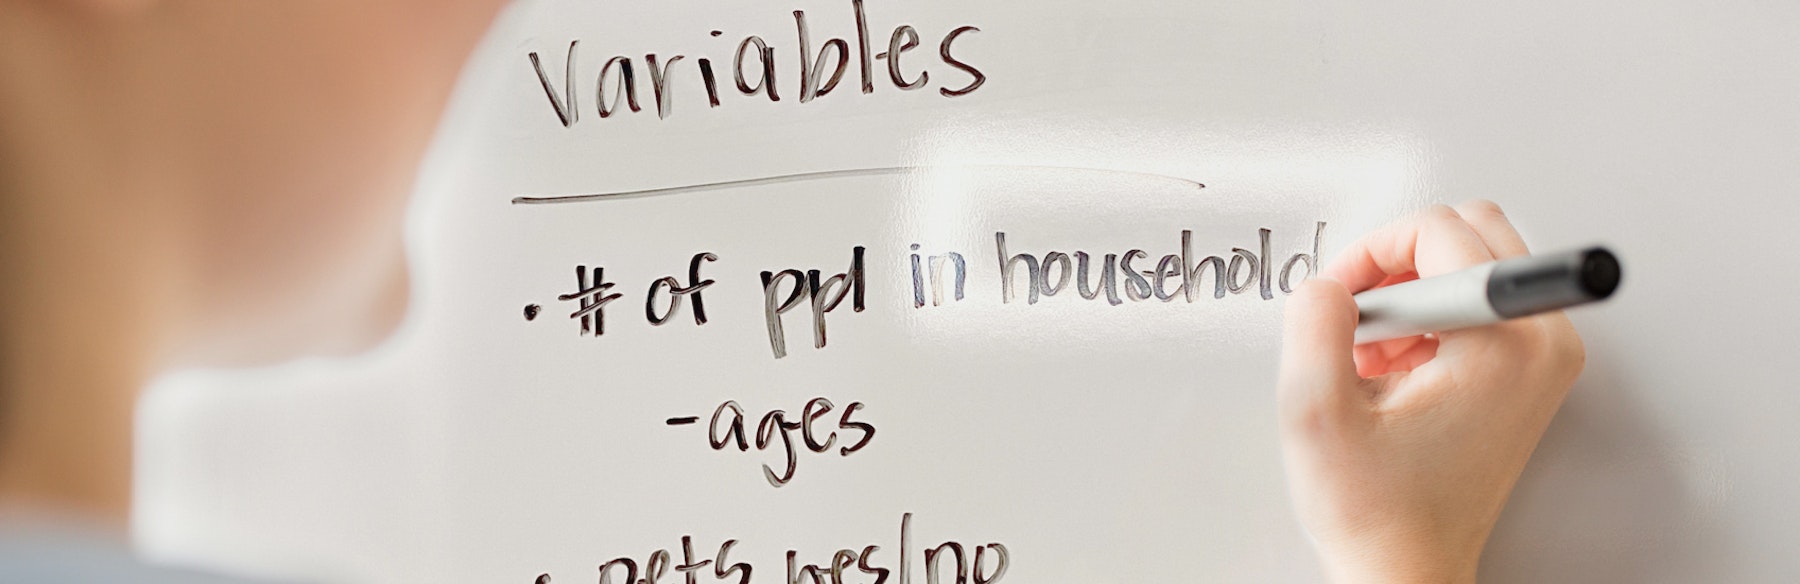 Variables
• # of ppl in household
- ages
• pets yes/no